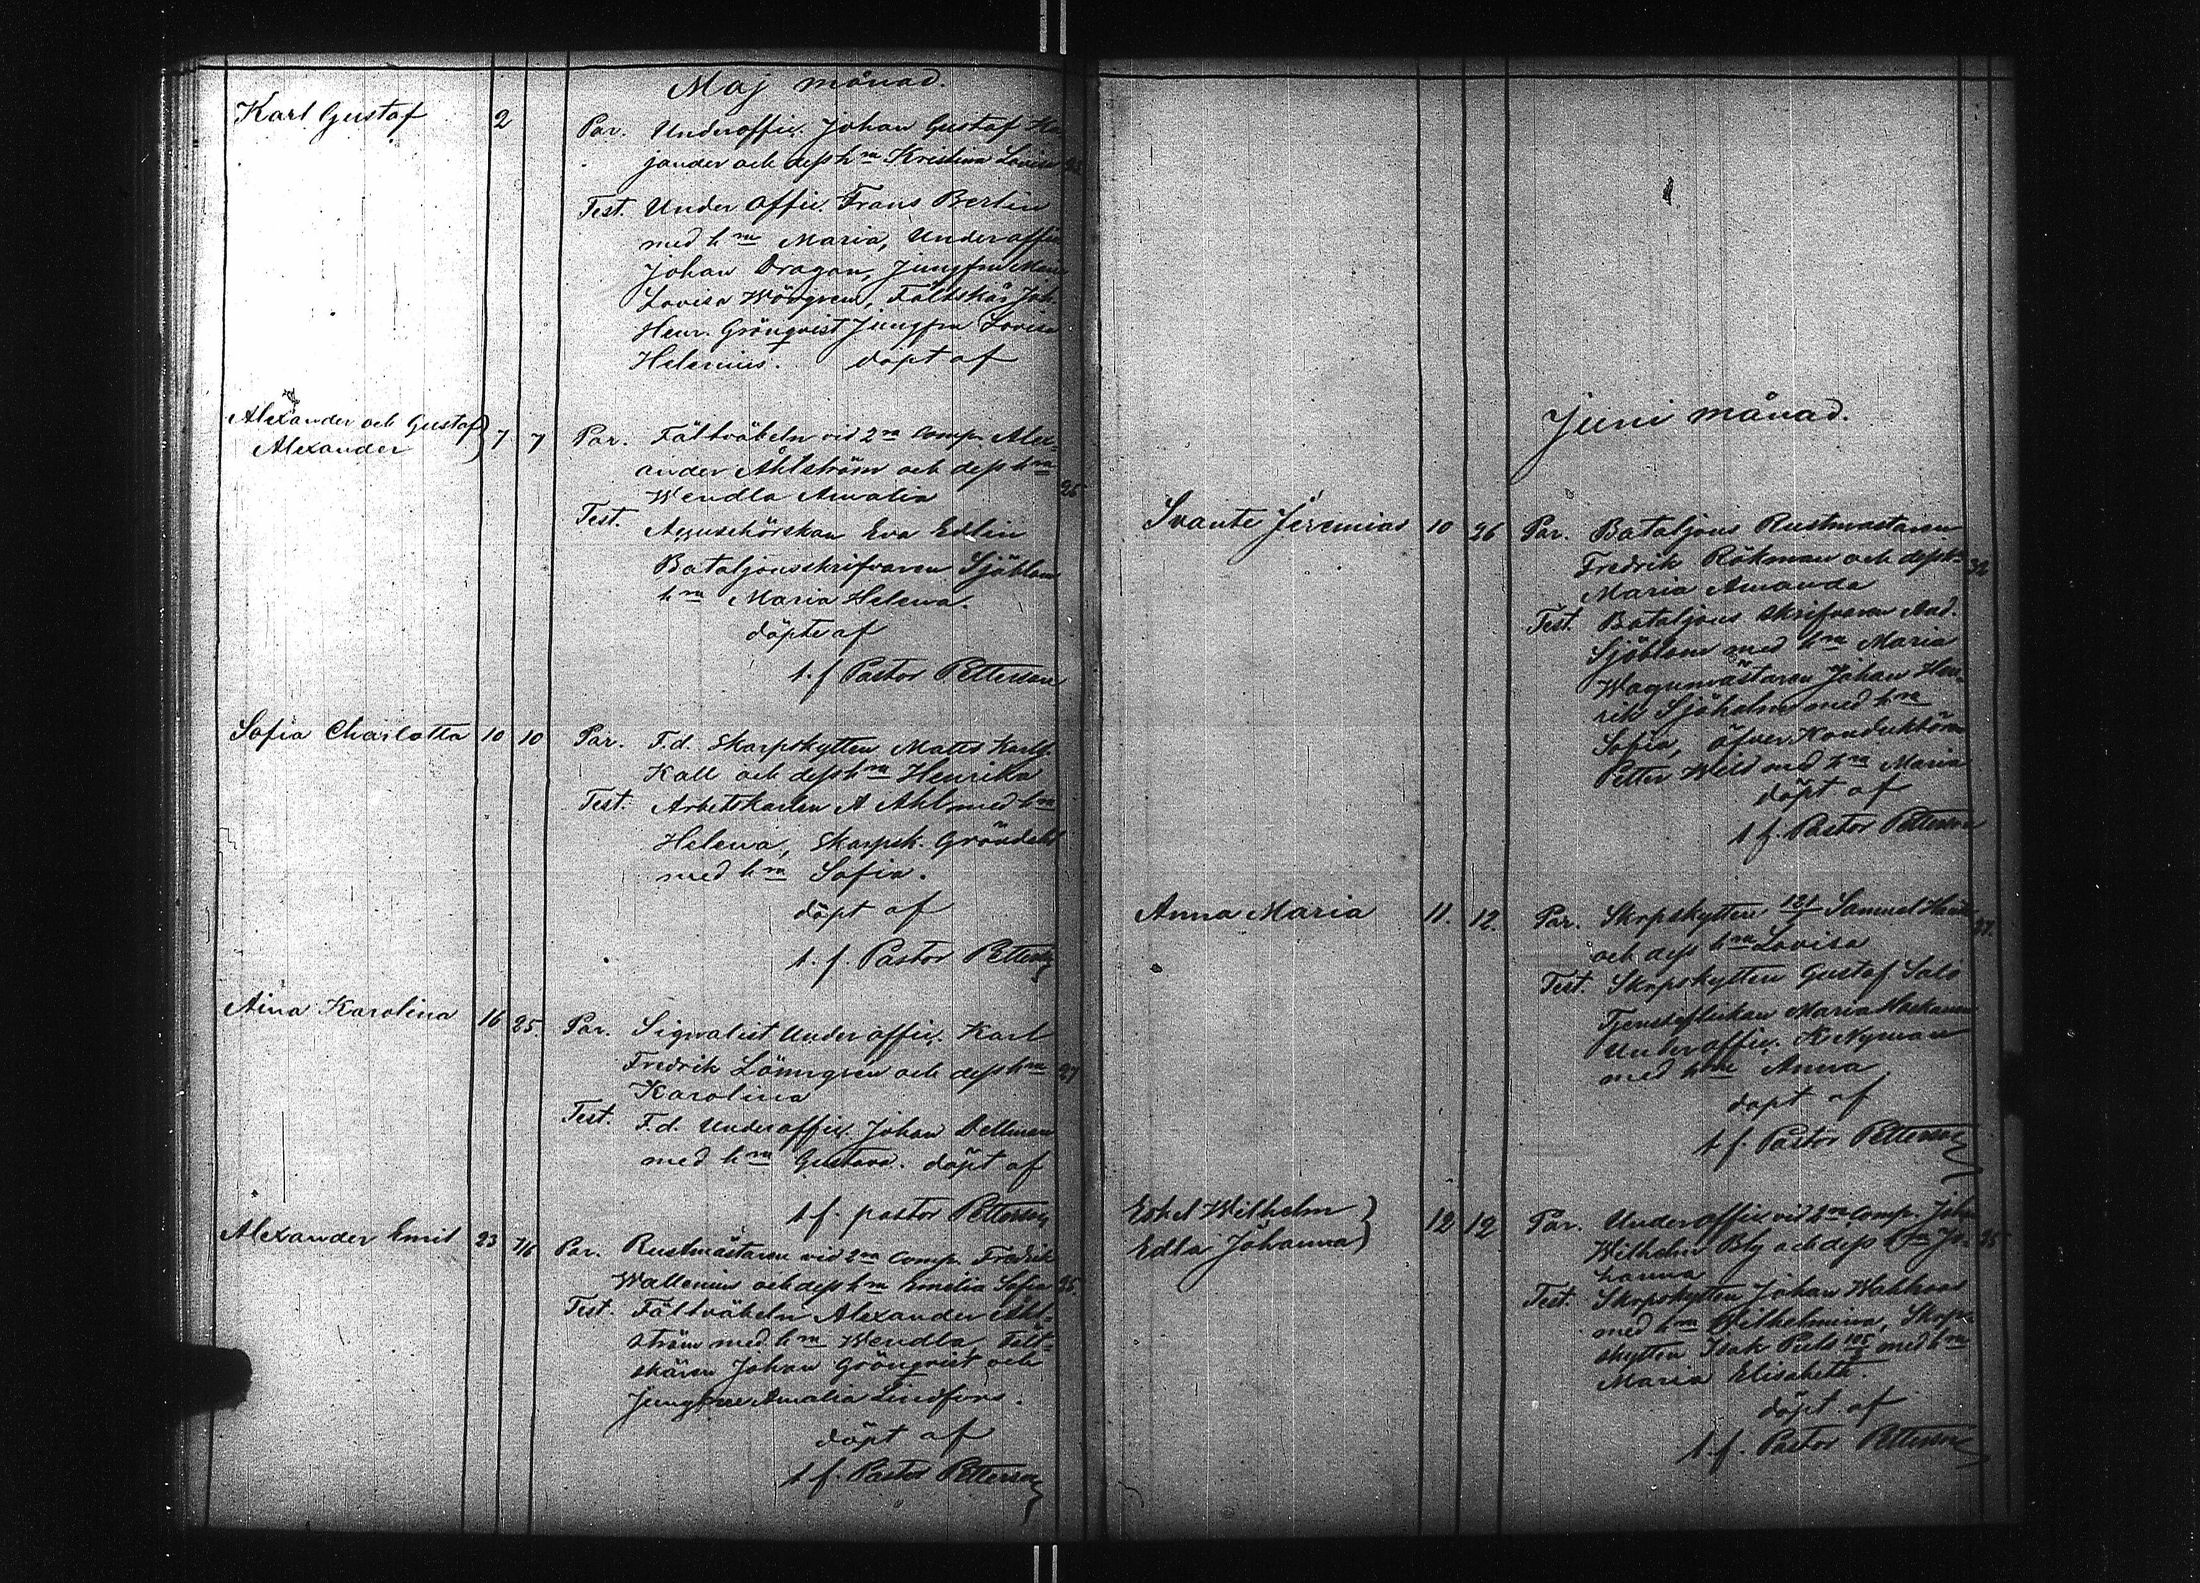 Maj månad.
Karl Gustaf 2 Par. Underoffic. Johan Gustaf
jander och dess hu Kristina Lovisa
Test. Under Offic. Frans Berlin
med hu Maria, Underoffic
Johan Dragon, Jungfru Maria
Lovisa, Fältskär Joh.
Henr. Grönqvist Jungfru Lovisa
Helenius. döpt af
Alexander och Gustaf
Alexander 7 7 Par. Fältväbeln vid 2ra Comp. Alex-
ander Åhlström och dess hu
Wendla Amalia 25
Test. Eva Edlin
Bataljonsskrifvaren Sjöblom
hu Maria Helena.
döpte af
t. f Pastor Petterson
Sofia Charlotta 10 10 Par. F.d. Skarpskytten Matts Karls.
Kall och dess hu Henrika
Test. Arbetskarlen A Ahl med hu
Helena, Skarpsk. Gröndahl
med hu Sofia.
döpt af
t. f. Pastor Petterson
Aina Karolina 16 25. Par. Signalist Under offic. Karl
Fredrik Lönngren och dess hu 27
Karolina
Test. F.d. Underoffic. Johan Dellman
med hu Gustava. döpt af
t. f. pastor Petterson
Alexander Emil 23 Par. Rustmästaren vid 2ra Comp. Fredrik
Wallenius och dess hu Emelia Sofia 25.
Test. Fältväbeln Alexander Åhl-
ström med hu Wendla, Fält-
skären Johan Grönqvist och
Jungfrue Amalia Lindfors.
döpt af
t. f. Pastor Petterson
Juni månad.
Svante Jeremias 10 26 Par. Bataljons Rustmästaren
Fredrik Rökman och dess hu 32
Maria Amanda
Test. Bataljons Skrifvaren And.
Sjöblom med hu Maria
Wagnmästaren Johan Hen-
rik Sjöholm med hu
Sofia, Öfver Konduktören
Petter Weld med hu Maria
döpt af
t. f. Pastor Petterson
Anna Maria 11. 12. Par. Skrpskytten Samuel
och dess hu Lovisa
Test. Skrpskytten Gustaf Salo
Tjensteflickan Maria
Underoffic. K Nyman
med hu Anna
döpt af
t. f. Pastor Petterson
Wilhelm
Edla Johanna 12 12 Par. Under offic vid Comp. Johan
Wilhelm Bly och dess hu Jo- 25
hanna
Test. Skrpskytten Johan
med hu Wilhelmina, Skrp-
skytten Isak med hu
Maria Elisabeth.
döpt af
t. f. Pastor Petterson